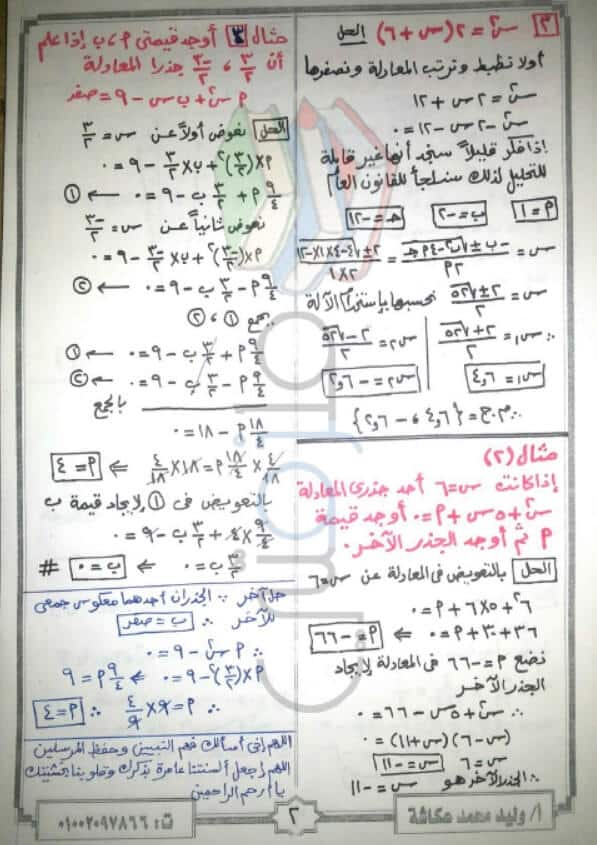 ٣ س٢ = ٢(س + ٦) الحل
أولا نظبط ونرتب المعادلة ونصفرها
س٢ = ٢س + ١٢
س٢ - ٢س - ١٢ = ٠
إذا فكر قليلاً ستجد أنها غير قابلة
للتحليل لذلك سنلجأ للقانون العام
م = ١ ب = -٢ جـ = -١٢
س = (-ب ± √(ب٢ - ٤م جـ)) / ٢م = (٢ ± √(٤ - ٤×١×-١٢)) / ٢×١
س = (٢ ± √٥٢) / ٢ نحسبها بإستخدام الآلة
∴ س١ = (٢ + √٥٢) / ٢ س٢ = (٢ - √٥٢) / ٢
س١ = ٤٫٦ س٢ = -٢٫٦
∴ م.ح = {٤٫٦ ، -٢٫٦}
مثال (٢)
إذا كانت س = ٦ أحد جذرى المعادلة
س٢ + ٥س + م = ٠ أوجد قيمة
م ثم أوجد الجذر الآخر.
الحل بالتعويض فى المعادلة عن س = ٦
٦٢ + ٥×٦ + م = ٠
٣٦ + ٣٠ + م = ٠ ⇐ م = -٦٦
نضع م = -٦٦ فى المعادلة لإيجاد
الجذر الآخر
∴ س٢ + ٥س - ٦٦ = ٠
(س - ٦)(س + ١١) = ٠
س = ٦ س = -١١
∴ الجذر الآخر هو س = -١١
مثال ٣ أوجد قيمتى م، ب إذا علم
أن ٣/٢ ، -٣/٢ جذرا المعادلة
م س٢ + ب س - ٩ = صفر
الحل نعوض أولاً عن س = ٣/٢
م×(٣/٢)٢ + ب×٣/٢ - ٩ = ٠
٩/٤ م + ٣/٢ ب - ٩ = ٠ ← ١
نعوض ثانياً عن س = -٣/٢
م×(-٣/٢)٢ + ب×-٣/٢ - ٩ = ٠
٩/٤ م - ٣/٢ ب - ٩ = ٠ ← ٢
بجمع ١ ، ٢
٩/٤ م + ٣/٢ ب - ٩ = ٠ ← ١
٩/٤ م - ٣/٢ ب - ٩ = ٠ ← ٢
بالجمع
١٨/٤ م - ١٨ = ٠
٤/١٨ × ١٨/٤ م = ١٨ × ٤/١٨ ⇐ م = ٤
بالتعويض فى ١ لإيجاد قيمة ب
٩/٤ × ٤ + ٣/٢ ب - ٩ = ٠
٣/٢ ب = ٠ ⇐ ب = ٠ #
حل آخر ∵ الجذران أحدهما معكوس جمعى
للآخر ∴ ب = صفر
∴ م س٢ - ٩ = ٠
م×(٣/٢)٢ - ٩ = ٠ ٩/٤ م = ٩
∴ م = ٩ × ٤/٩ ∴ م = ٤
اللهم إنى أسألك فهم النبيين وحفظ المرسلين
اللهم إجعل ألسنتنا عامرة بذكرك وقلوبنا بخشيتك
يا أرحم الراحمين
أ/ وليد محمد عكاشة
٢
ت: ٠١٠٠٢٠٩٧٨٦٦